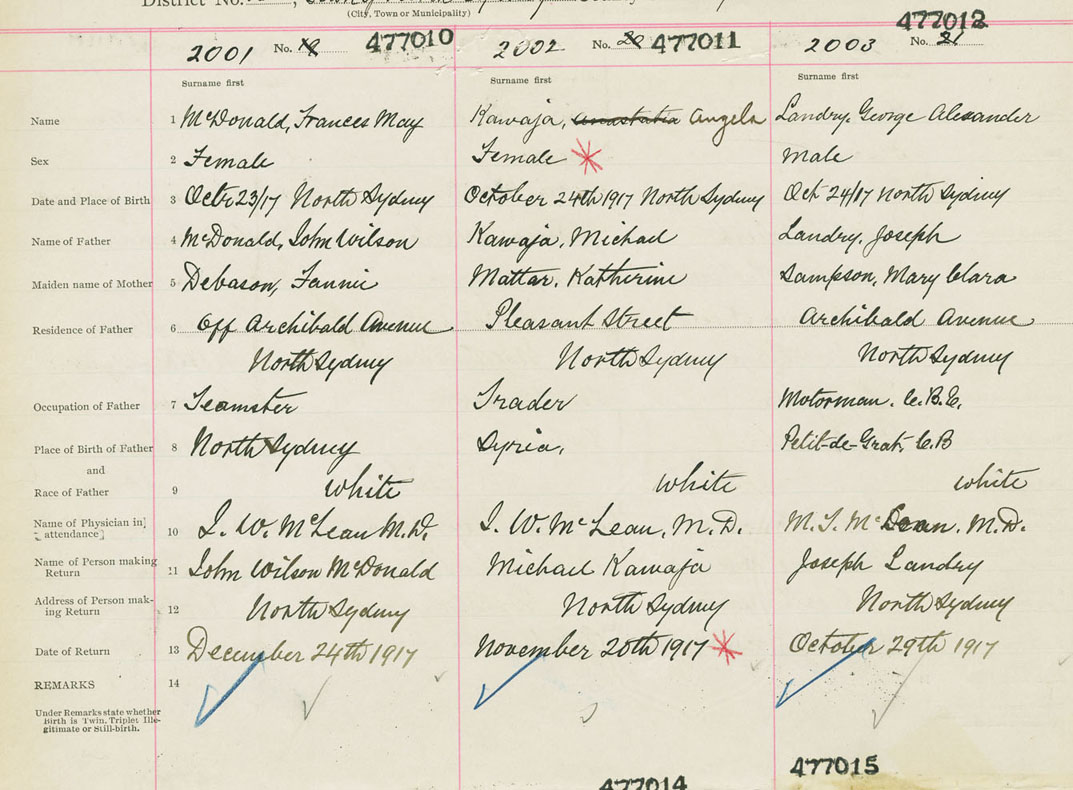 District No.
(City, Town or Municipality)
2001 No. 477010
2002 No. 20 477011
2003 No. 21 477012
Surname first Surname first Surname first
Name 1 McDonald, Frances May Kawaja, Anastatia Angela Landry, George Alexander
Sex 2 Female Female Male
Date and Place of Birth 3 Octr 23/17 North Sydney October 24th 1917 North Sydney Oct 24/17 North Sydney
Name of Father 4 McDonald, John Wilson Kawaja, Michael Landry, Joseph
Maiden name of Mother 5 Debason, Fannie Mattar, Katherine Sampson, Mary Clara
Residence of Father 6 Off Archibald Avenue Pleasant Street Archibald Avenue
North Sydney North Sydney North Sydney
Occupation of Father 7 Teamster Trader Motorman. C.B.E.
Place of Birth of Father 8 North Sydney Syria, Petit-de-Grat, C.B
and
Race of Father 9 white white white
Name of Physician in attendance 10 J. W. McLean M.D. J. W. McLean, M.D. M. T. Mc M.D.
Name of Person making Return 11 John Wilson McDonald Michael Kawaja Joseph Landry
Address of Person mak-
ing Return 12 North Sydney North Sydney North Sydney
Date of Return 13 December 24th 1917 November 20th 1917 October 29th 1917
REMARKS 14
Under Remarks state whether
Birth is Twin, Triplet Ille-
gitimate or Still-birth.
477014
477015